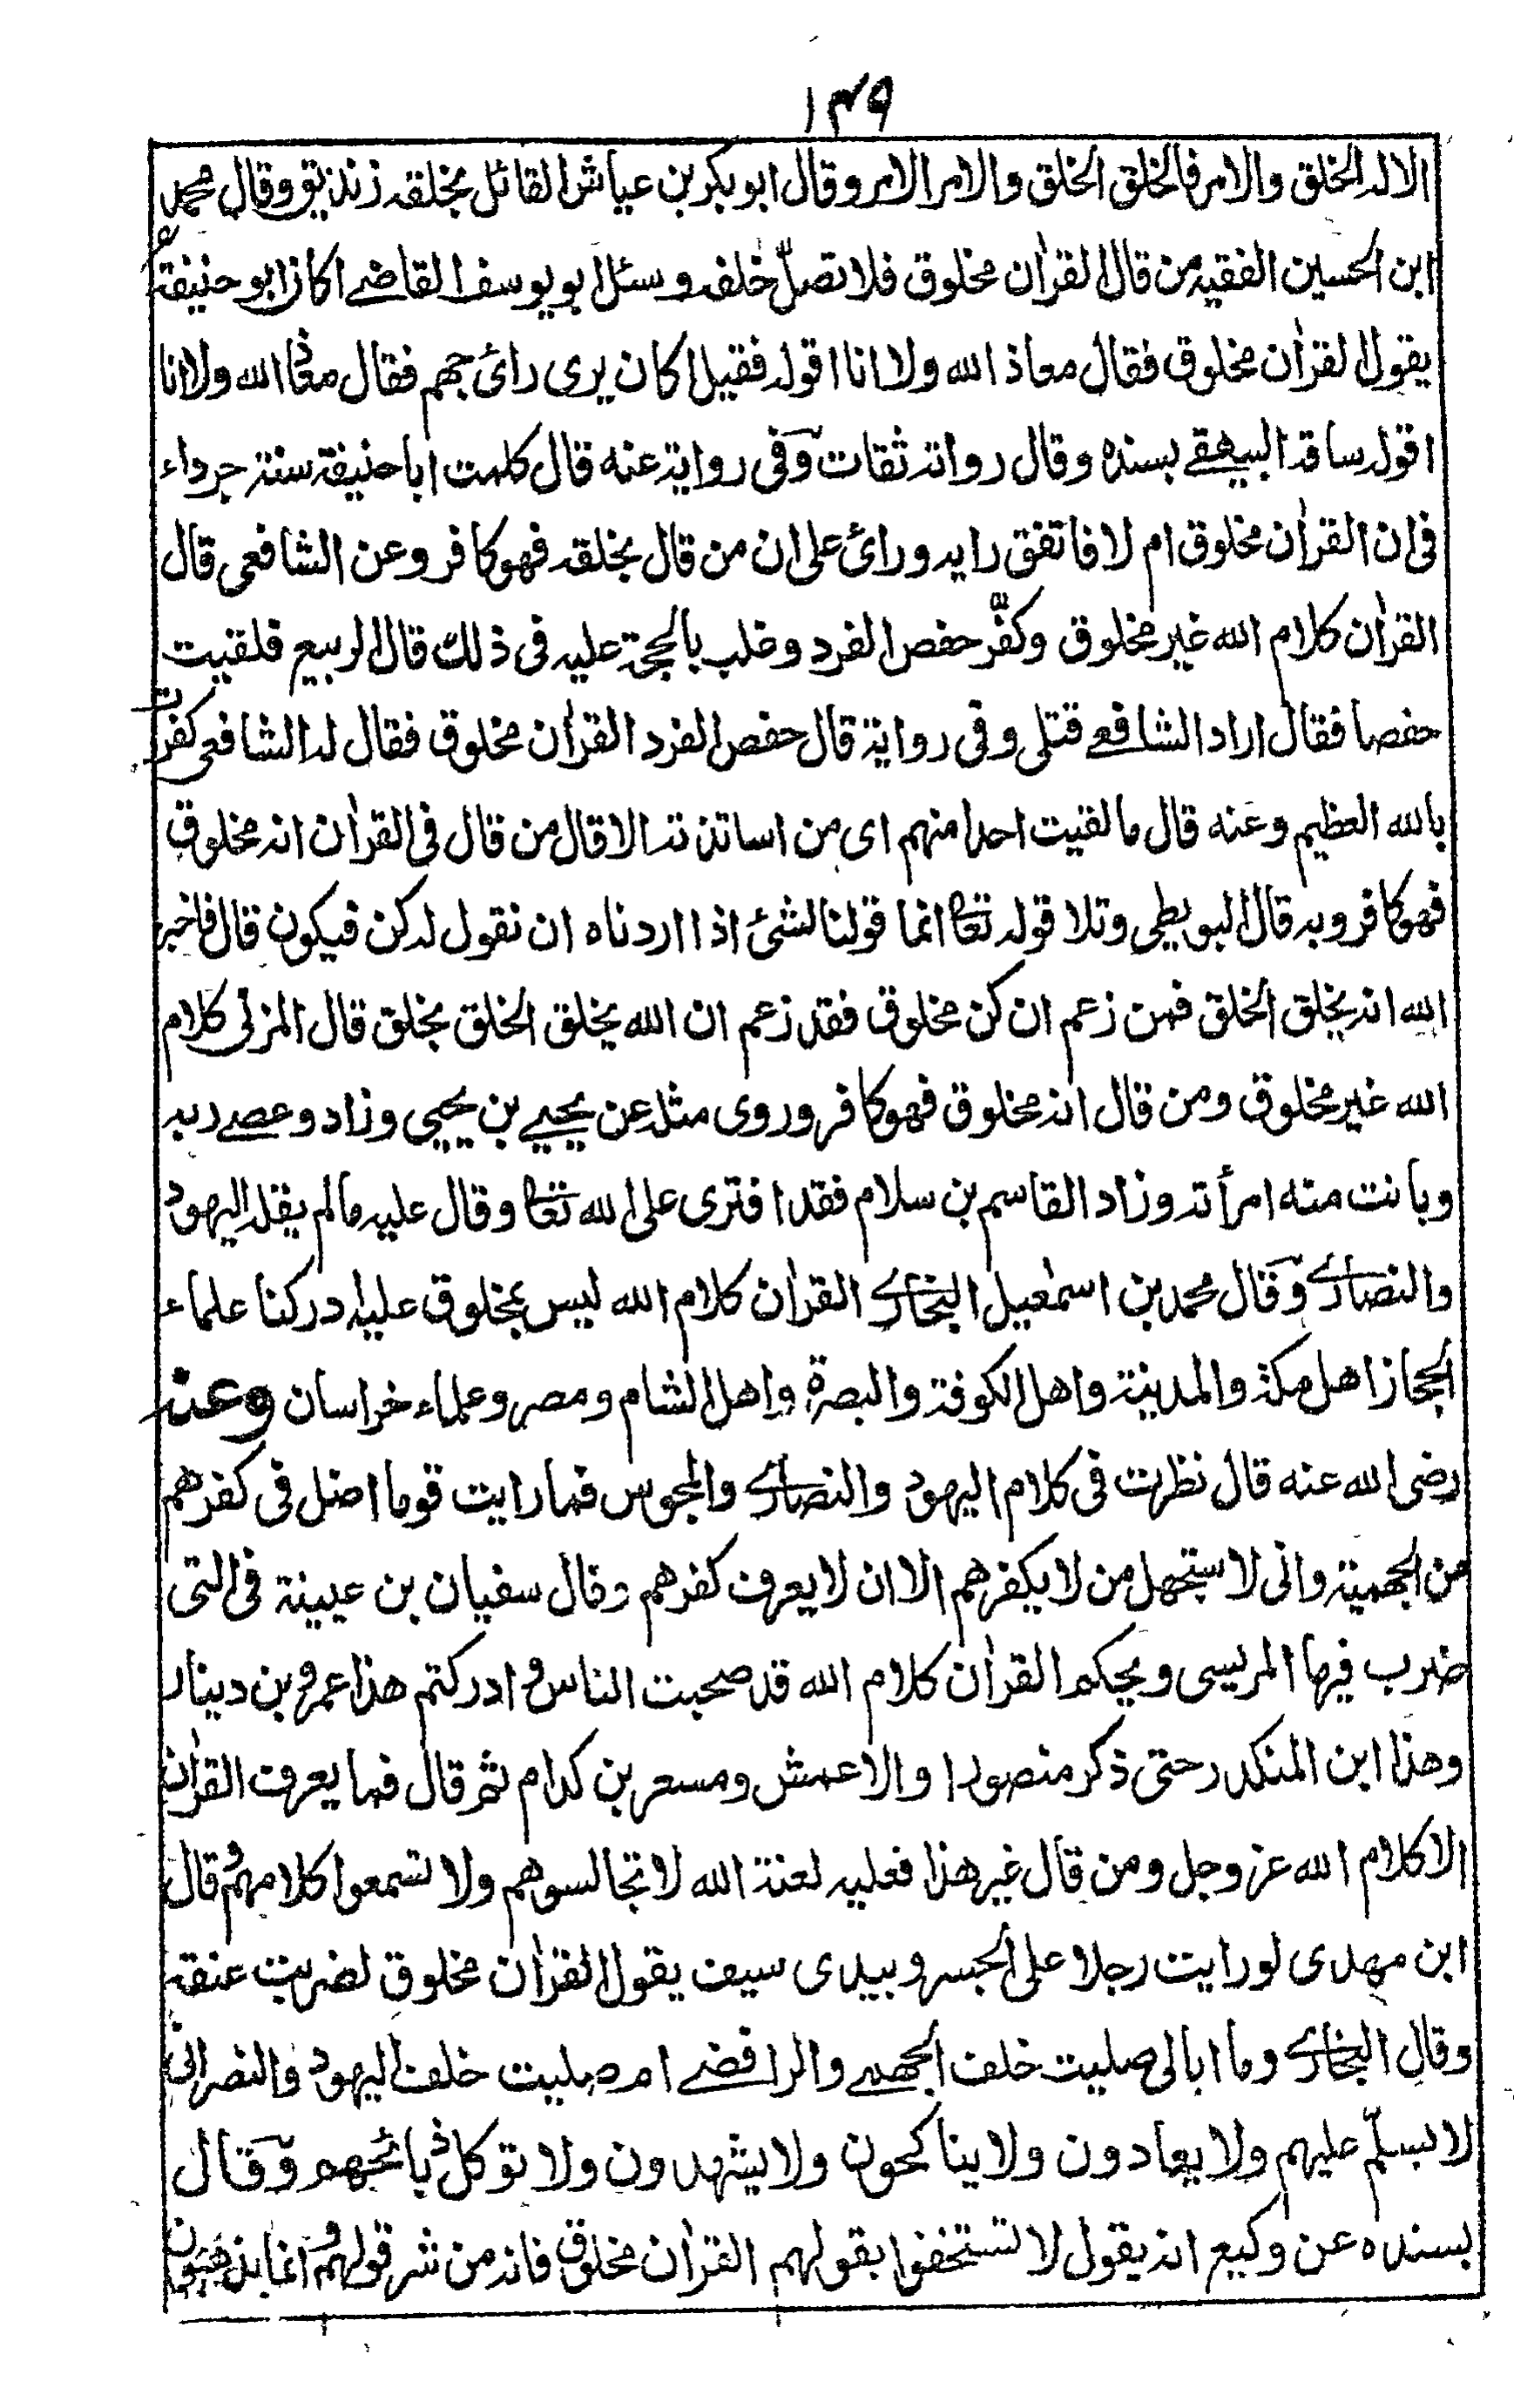 ١٣٩
الا له الخلق والامر فالخلق الخلق والامر الامر وقال ابو بكر بن عياش القائل بخلقه زنديق وقال محمد
ابن الحسين الفقيه من قال القرأن مخلوق فلا تصلّ خلفه وسئل ابو يوسف القاضے اكان ابو حنيفة
يقول القرأن مخلوق فقال معاذ الله ولا انا اقوله فقيل اكان يرى رائ جهم فقال معاذ الله ولا انا
اقوله ساقه البيهقے بسنده وقال رواته ثقات وفى رواية عنه قال كلمت اباحنيفة سنة جرداء
فى ان القرأن مخلوق ام لا فاتفق رايه ورائ على ان من قال بخلقه فهو كافر وعن الشافعى قال
القرأن كلام الله غير مخلوق وكفّر حفص الفرد وغلب بالحجة عليه فى ذلك قال الربيع فلقيت
حفصا فقال اراد الشافعے قتلى وفى رواية قال حفص الفرد القرأن مخلوق فقال له الشافعى كفرت
بالله العظيم وعنه قال ما لقيت احدا منهم اى من اساتذته الا قال من قال فى القرأن انه مخلوق
فهو كافر وبه قال البويطى وتلا قوله تعا انما قولنا لشئ اذا اردناه ان نقول له كن فيكون قال فاخبر
الله انه يخلق الخلق فمن زعم ان كن مخلوق فقد زعم ان الله يخلق الخلق بخلق قال المزنى كلام
الله غير مخلوق ومن قال انه مخلوق فهو كافر وروى مثله عن يحيے بن يحيى وزاد وعصے ربه
وبانت منه امرأته وزاد القاسم بن سلام فقد افترى على الله تعا وقال عليه ما لم يقله اليهود
والنصارے وقال محمد بن اسمعيل البخارے القرأن كلام الله ليس بمخلوق عليه ادركنا علماء
الحجاز اهل مكة والمدينة واهل الكوفة والبصرة واهل الشام ومصر وعلماء خراسان وعنه
رضى الله عنه قال نظرت فى كلام اليهود والنصارے والمجوس فما رايت قوما اضل فى كفرهم
من الجهمية وانى لاستجهل من لا يكفرهم الا ان لا يعرف كفرهم وقال سفيان بن عيينة فى التى
ضرب فيها المريسى ويحكم القرأن كلام الله قد صحبت الناس وادركتم هذا عمرو بن دينار
وهذا ابن المنكدر حتى ذكر منصورا والاعمش ومسعر بن كدام ثم قال فما يعرف القرأن
الا كلام الله عز وجل ومن قال غير هذا فعليه لعنة الله لا تجالسوهم ولا تسمعوا كلامهم وقال
ابن مهدى لو رايت رجلا على الجسر وبيدى سيف يقول القرأن مخلوق لضربت عنقه
وقال البخارے وما ابالى صليت خلف الجهمے والرافضے ام صليت خلف اليهود والنصرانى
لا يسلّم عليهم ولا يعادون ولا يناكحون ولا يشهدون ولا توكل ذبائحهم وقال
بسنده عن وكيع انه يقول لا تستخفوا بقولهم القرأن مخلوق فانه من شر قولهم وانما يذهبون